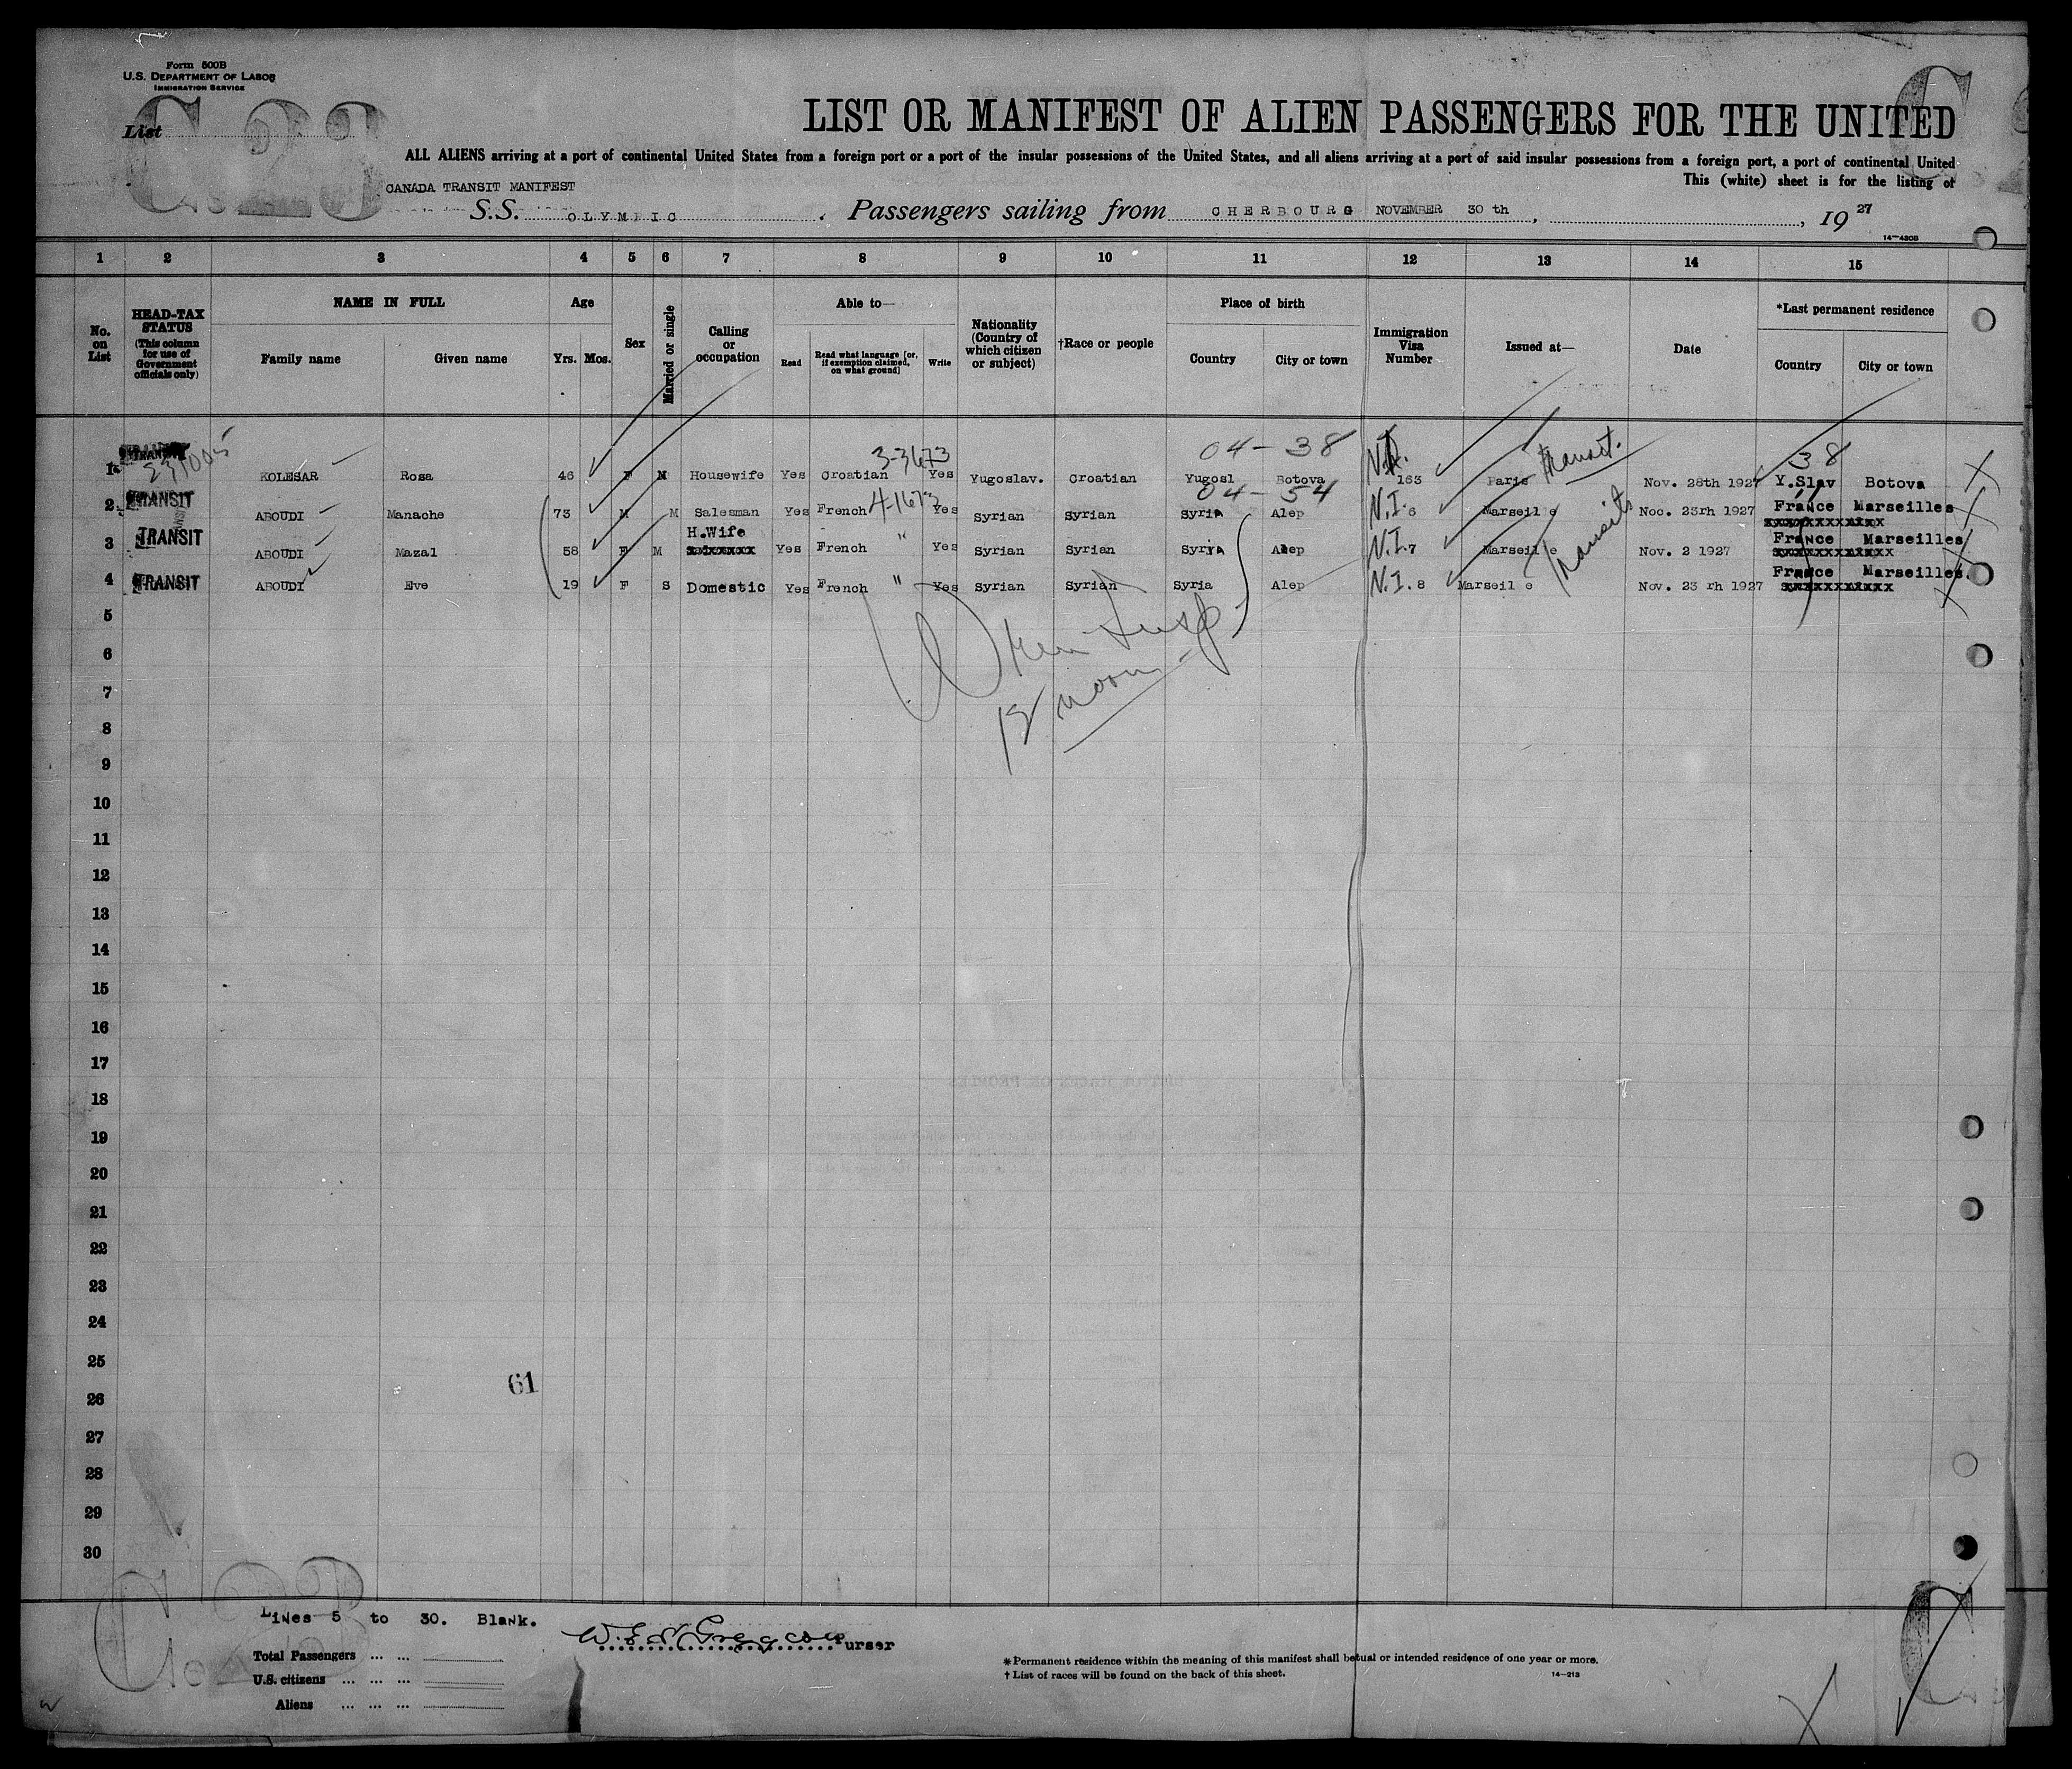 Form 500B
U.S. DEPARTMENT OF LABOR
IMMIGRATION SERVICE
C 23
List
LIST OR MANIFEST OF ALIEN PASSENGERS FOR THE UNITED
ALL ALIENS arriving at a port of continental United States from a foreign port or a port of the insular possessions of the United States, and all aliens arriving at a port of said insular possessions from a foreign port, a port of continental United
This (white) sheet is for the listing of
CANADA TRANSIT MANIFEST
S.S. OLYMPIC . Passengers sailing from CHERBOURG NOVEMBER 30 th , , 19 27
14-430B
1 2 3 4 5 6 7 8 9 10 11 12 13 14 15
No. on List
HEAD-TAX STATUS (This column for use of Government officials only)
NAME IN FULL
Family name Given name
Age
Yrs. Mos.
Sex
Married or single
Calling or occupation
Able to—
Read
Read what language [or, if exemption claimed, on what ground]
Write
Nationality (Country of which citizen or subject)
†Race or people
Place of birth
Country City or town
Immigration Visa Number
Issued at—
Date
*Last permanent residence
Country City or town
3-3673 04-38 38
1 TRANSIT KOLESAR Rosa 46 F M Housewife Yes Croatian Yes Yugoslav. Croatian Yugosl Botova 163 Paris transit. Nov. 28th 1927 Y.Slav Botova
4-1673 04-54
2 TRANSIT ABOUDI Manache 73 M M Salesman Yes French Yes Syrian Syrian Syria Alep N.I. 6 Marseille Noo. 23rh 1927 France Marseilles
3 TRANSIT ABOUDI Mazal 58 F M H.Wife Yes French " Yes Syrian Syrian Syria Alep N.I. 7 Marseille Nov. 2 1927 France Marseilles
4 TRANSIT ABOUDI Eve 19 F S Domestic Yes French " Yes Syrian Syrian Syria Alep N.I. 8 Marseil e Nov. 23 rh 1927 France Marseilles.
transits
5
6
7
8
9
10
11
12
13
14
15
16
17
18
19
20
21
22
23
24
25
26
27
28
29
30
61
Lines 5 to 30. Blank.
Purser
Total Passengers ... ...
U.S. citizens ... ... ...
Aliens ... ... ...
* Permanent residence within the meaning of this manifest shall be
tual or intended residence of one year or more.
† List of races will be found on the back of this sheet.
14-213